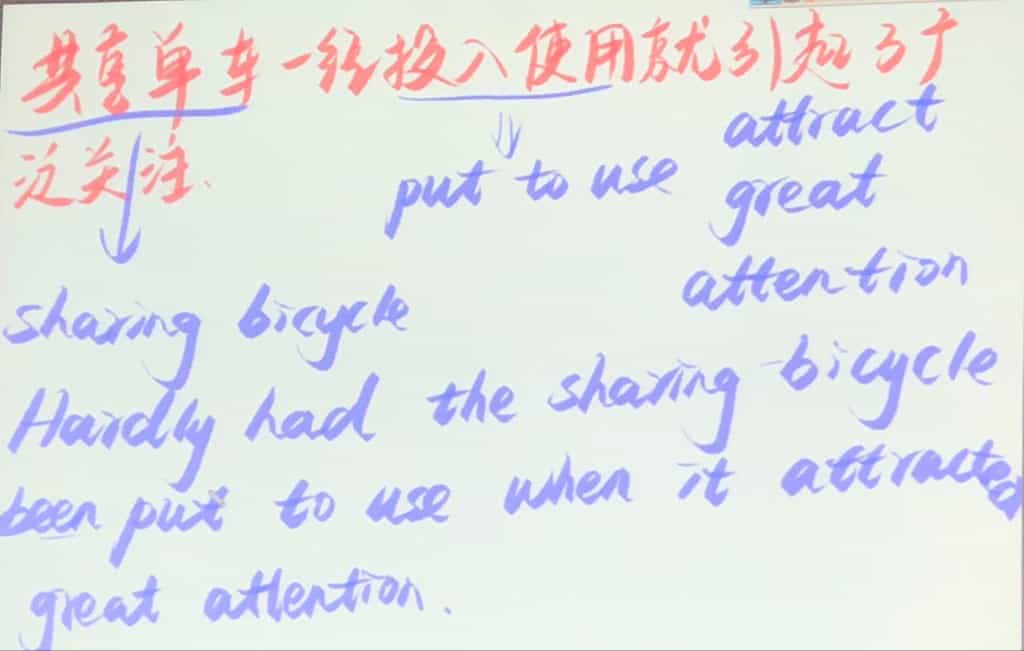 共享单车一经投入使用就引起了广
泛关注.
put to use
attract
great
attention
sharing bicycle
Hardly had the sharing bicycle
been put to use when it attracted
great attention.